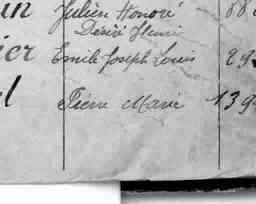 in Julien Honoré 88
Désiré Henri
ier Emile Joseph Louis 29
el Pierre Marie 139